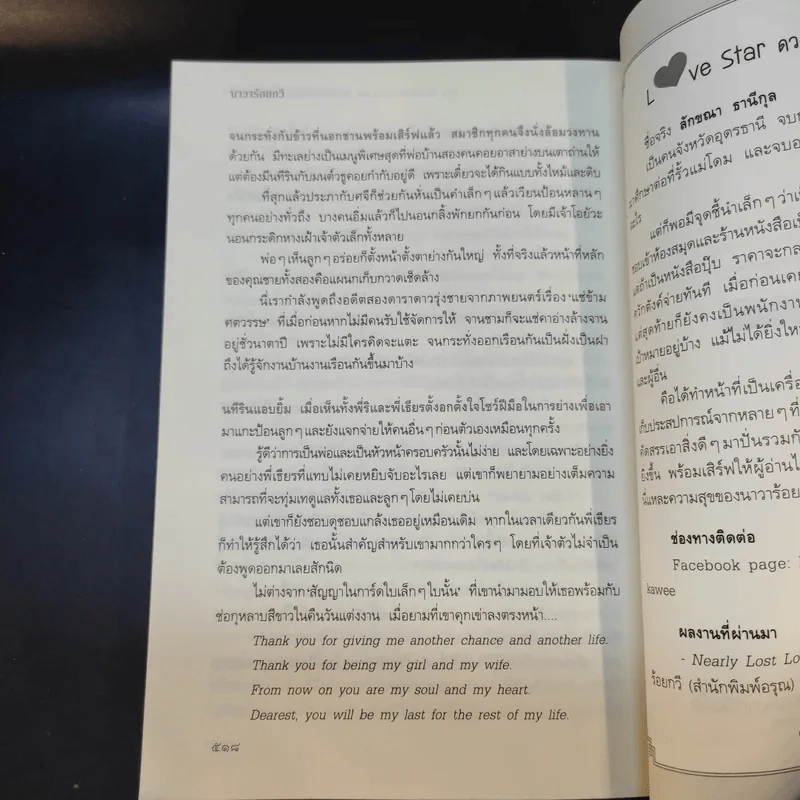 นาวาร้อยกวี
จนกระทั่งกับข้าวที่นอกชานพร้อมเสิร์ฟแล้ว สมาชิกทุกคนจึงนั่งล้อมวงทาน
ด้วยกัน มีทะเลย่างเป็นเมนูพิเศษสุดที่พ่อบ้านสองคนคอยอาสาย่างบนเตาถ่านให้
แต่ต้องมีนทีรินกับมนต์วธูคอยกำกับอยู่ดี เพราะเดี๋ยวจะได้กินแบบทั้งไหม้และดิบ
ที่สุดแล้วประภากับศจีก็ช่วยกันหั่นเป็นคำเล็กๆ แล้วเวียนป้อนหลานๆ
ทุกคนอย่างทั่วถึง บางคนอิ่มแล้วก็ไปนอนกลิ้งพักยกกันก่อน โดยมีเจ้าโอยัวะ
นอนกระดิกหางเฝ้าเจ้าตัวเล็กทั้งหลาย
พ่อๆ เห็นลูกๆ อร่อยก็ตั้งหน้าตั้งตาย่างกันใหญ่ ทั้งที่จริงแล้วหน้าที่หลัก
ของคุณชายทั้งสองคือแผนกเก็บกวาดเช็ดล้าง
นี่เรากำลังพูดถึงอดีตสองดาราดาวรุ่งชายจากภาพยนตร์เรื่อง ‘แช่ข้าม
ศตวรรษ’ ที่เมื่อก่อนหากไม่มีคนรับใช้จัดการให้ จานชามก็จะแช่คาอ่างล้างจาน
อยู่ชั่วนาตาปี เพราะไม่มีใครคิดจะแตะ จนกระทั่งออกเรือนกันเป็นฝั่งเป็นฝา
ถึงได้รู้จักงานบ้านงานเรือนกันขึ้นมาบ้าง
นทีรินแอบยิ้ม เมื่อเห็นทั้งพี่ริและพี่เธียรตั้งอกตั้งใจโชว์ฝีมือในการย่างเพื่อเอา
มาแกะป้อนลูกๆ และยังแจกจ่ายให้คนอื่นๆ ก่อนตัวเองเหมือนทุกครั้ง
รู้ดีว่าการเป็นพ่อและเป็นหัวหน้าครอบครัวนั้นไม่ง่าย และโดยเฉพาะอย่างยิ่ง
คนอย่างพี่เธียรที่แทบไม่เคยหยิบจับอะไรเลย แต่เขาก็พยายามอย่างเต็มความ
สามารถที่จะทุ่มเทดูแลทั้งเธอและลูกๆ โดยไม่เคยบ่น
แต่เขาก็ยังชอบดุชอบแกล้งเธออยู่เหมือนเดิม หากในเวลาเดียวกันพี่เธียร
ก็ทำให้รู้สึกได้ว่า เธอนั้นสำคัญสำหรับเขามากกว่าใครๆ โดยที่เจ้าตัวไม่จำเป็น
ต้องพูดออกมาเลยสักนิด
ไม่ต่างจาก ‘สัญญาในการ์ดใบเล็กๆ ใบนั้น’ ที่เขานำมามอบให้เธอพร้อมกับ
ช่อกุหลาบสีขาวในคืนวันแต่งงาน เมื่อยามที่เขาคุกเข่าลงตรงหน้า....
Thank you for giving me another chance and another life.
Thank you for being my girl and my wife.
From now on you are my soul and my heart.
Dearest, you will be my last for the rest of my life.
๕๑๘
L ve Star ดว
ชื่อจริง ลักขณา ธานีกุล
เป็นคนจังหวัดอุดรธานี จบ
ศึกษาต่อที่รั้วแม่โดม และจบ
อะไร
แต่ก็พอมีจุดชี้นำเล็กๆ ว่า
ชอบเข้าห้องสมุดและร้านหนังสือ
แต่ถ้าเป็นหนังสือปุ๊บ ราคาจะ
ควักตังค์จ่ายทันที เมื่อก่อนเคย
แต่สุดท้ายก็ยังคงเป็นพนักงาน
เป้าหมายอยู่บ้าง แม้ไม่ได้ยิ่งใหญ่
และผู้อื่น
คือได้ทำหน้าที่เป็นเครื่อ
เก็บประสปการณ์จากหลายๆ ที่
คัดสรรเอาสิ่งดีๆ มาปั่นรวมกั
ยิ่งขึ้น พร้อมเสิร์ฟให้ผู้อ่าน
นี่แหละความสุขของนาวาร้อย
ช่องทางติดต่อ
Facebook page:
kawee
ผลงานที่ผ่านมา
- Nearly Lost Lo
ร้อยกวี (สำนักพิมพ์อรุณ)